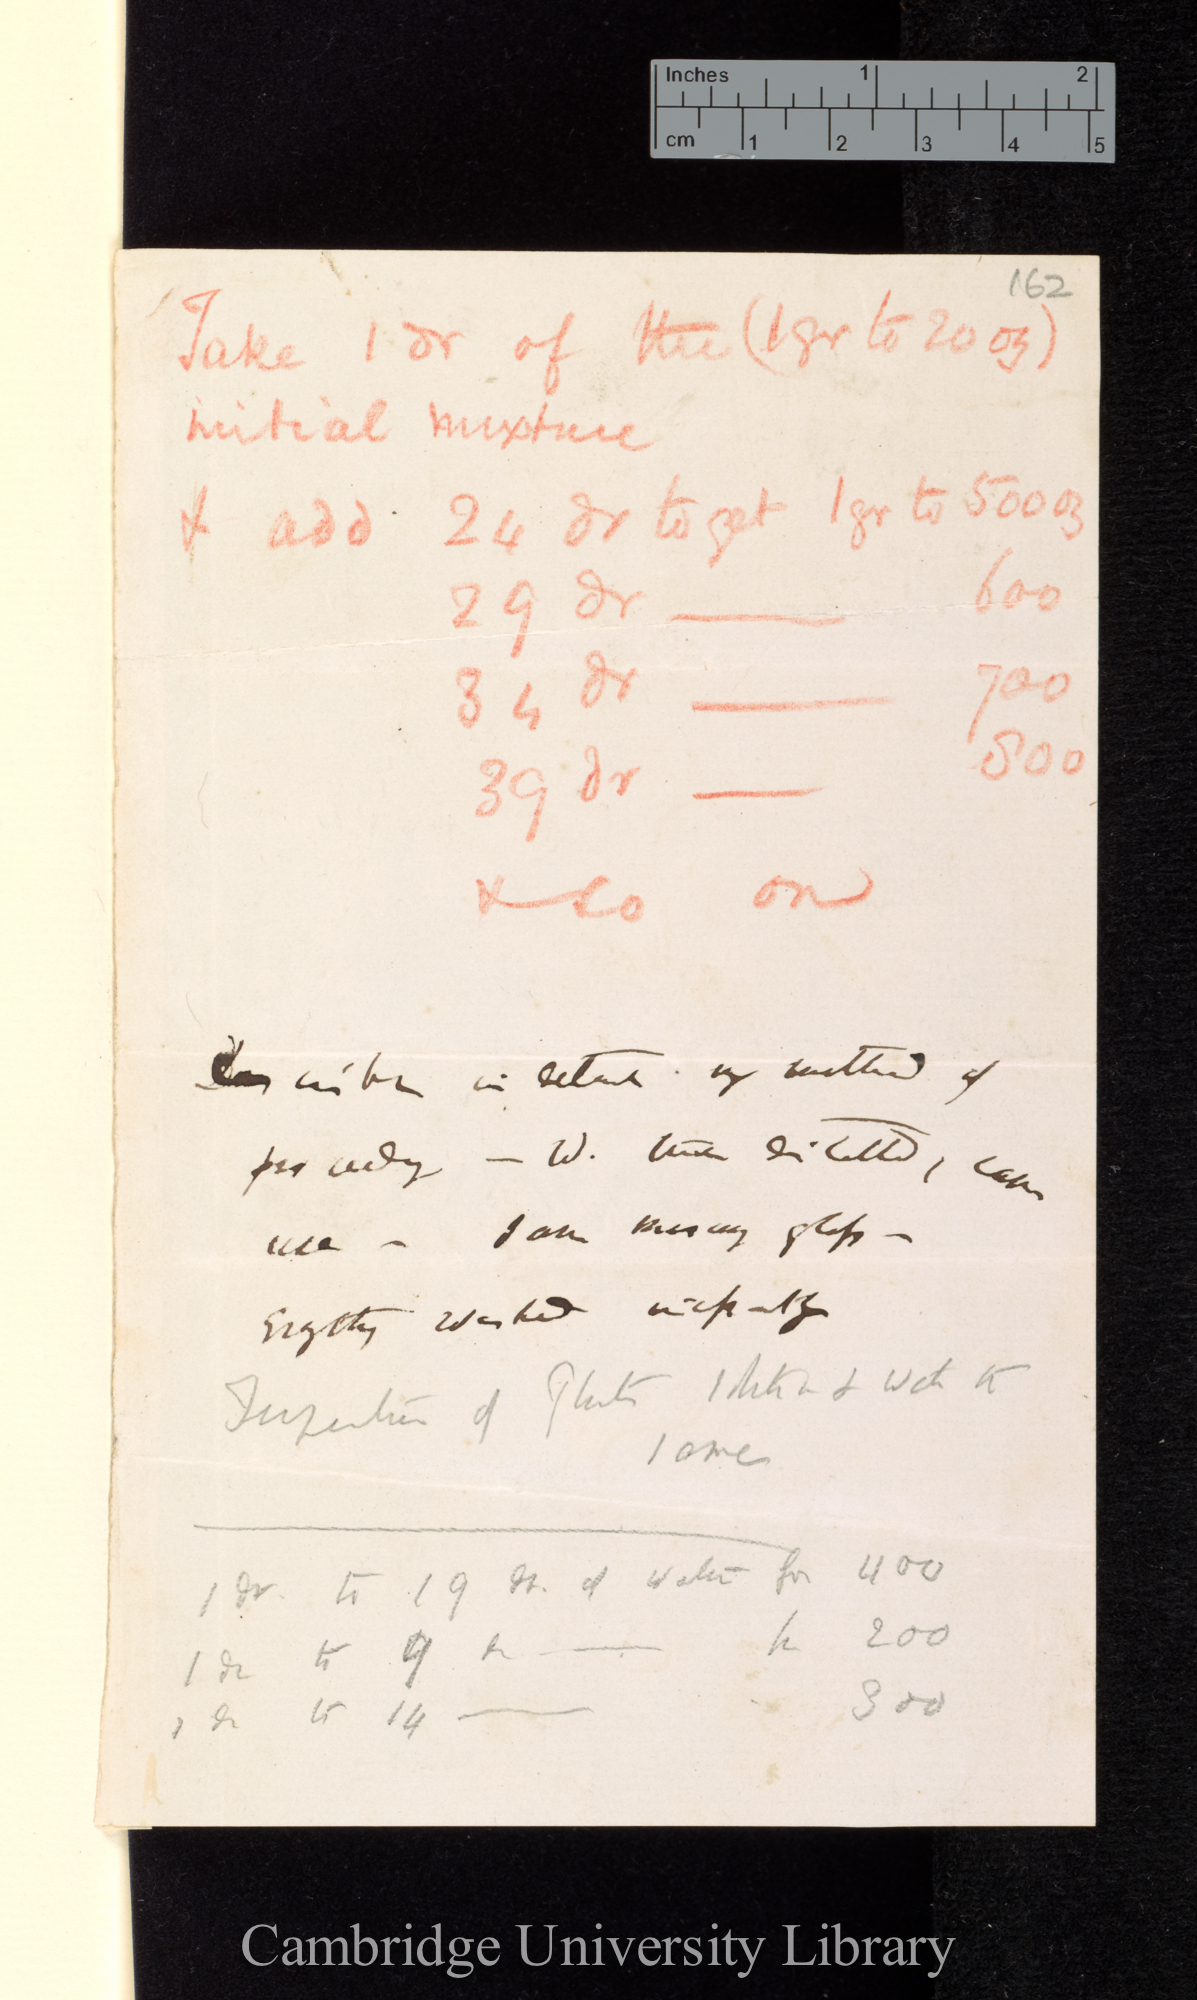 Inches 1 2
cm 1 2 3 4 5
162
Take 1 dr of the (1 gr to 20 oz)
initial mixture
& add 24 dr to get 1 gr to 500 oz
29 dr — 600
34 dr — 700
39 dr — 800
& so on
Describe in detail my method of
proceeding — W. twice distilled, came
use — same measuring glass —
Everything washed
Inspection of Plants & Water to
same
1 dr. to 19 dr. of water for 400
1 dr to 9 dr — for 200
1 dr to 14 — 300
Cambridge University Library